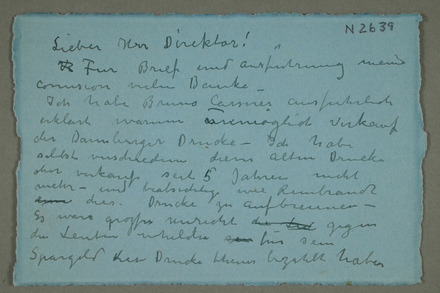 N2639
Lieber Herr Direktor!
Für Brief und ausführung meine
comission vielen Danke.
Ich habe Bruno Cassirer ausführlich
erklärt warum unmöglich Verkauf
der Drucke – Ich habe
selbst verschiedene dieser alten Drucke
verkauft seit 5 Jahren nicht
mehr – und wie Rembrandt
dies. Drucke zu
Es wäre grosses unrecht gegen
die Leuten welche für sein
Spargeld Drucke bezahlt haben